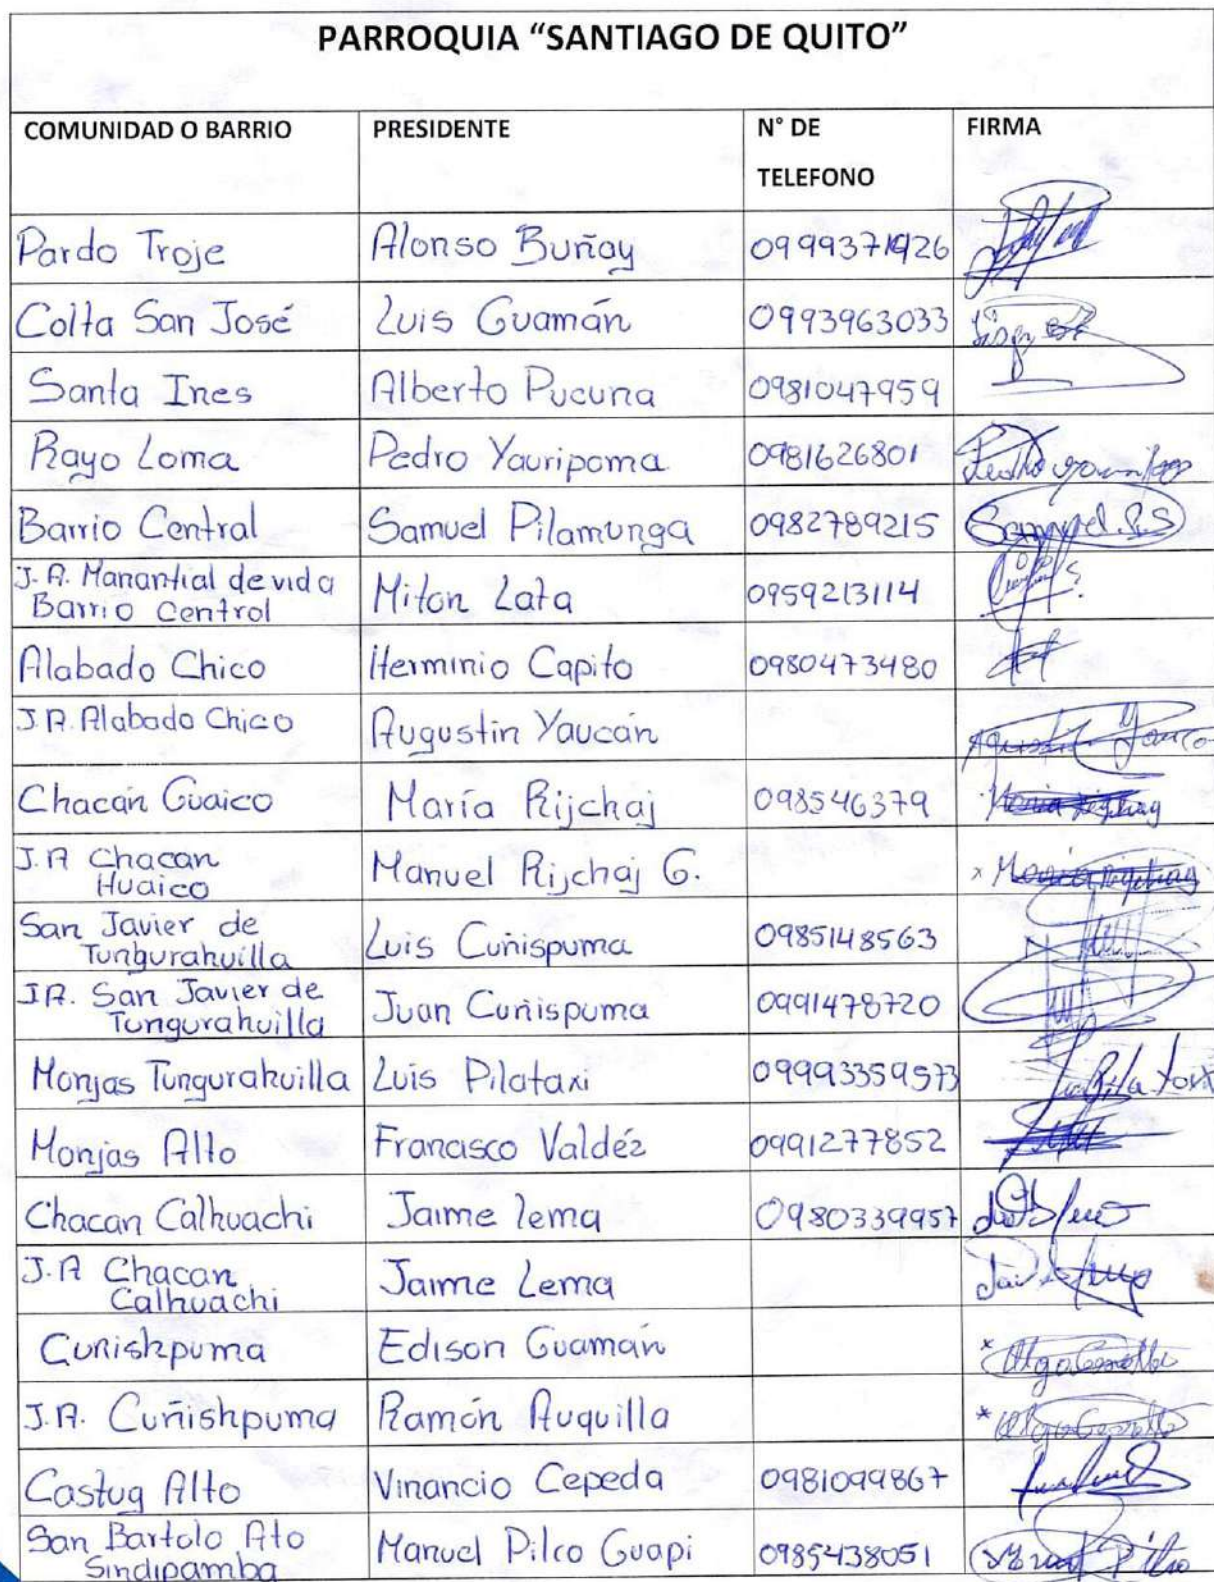 PARROQUIA “SANTIAGO DE QUITO”
COMUNIDAD O BARRIO PRESIDENTE N° DE TELEFONO FIRMA
Pardo Troje Alonso Buñay
Colta San José Luis Guamán 0993963033
Santa Ines Alberto Pucuna 0981047959
Rayo Loma Pedro Yauripoma 0981626801
Barrio Central Samuel Pilamunga 0982789215 Samuel. P.S
J. A. Manantial de vida
Barrio Central Milton Lata 0959213114
Alabado Chico Herminio Capito 0980473480
J.A. Alabado Chico Augustin Yaucán
Chacán Guaico María Rijchaj 098546379
J.A Chacan
Huaico Manuel Rijchaj G.
San Javier de
Tungurahuilla Luis Cuñispuma 0985148563
JA. San Javier de
Tungurahuilla Juan Cuñispuma 0991478720
Monjas Tungurahuilla Luis Pilataxi 09993359573
Monjas Alto Francisco Valdéz 0991277852
Chacan Calhuachi Jaime lema 0980339957
J.A Chacan
Calhuachi Jaime Lema
Cuñishpuma Edison Guamán
J.A. Cuñishpuma Ramón Auquilla
Castug Alto Vinancio Cepeda 0981099867
San Bartolo Ato
Sindipamba Manuel Pilco Guapi 0985438051